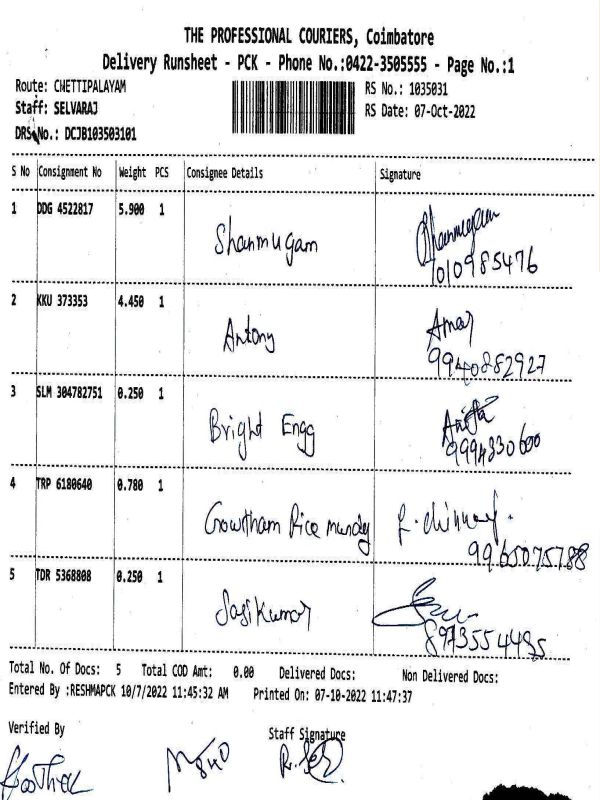 THE PROFESSIONAL COURIERS, Coimbatore
Delivery Runsheet - PCK - Phone No.:0422-3505555 - Page No.:1
Route: CHETTIPALAYAM
RS No.: 1035031
Staff: SELVARAJ
RS Date: 07-Oct-2022
DRS No.: DCJB103503101
S No Consignment No Weight PCS Consignee Details Signature
1 DDG 4522817 5.900 1 Shanmugam Shanmugam
1010985476
2 KKU 373353 4.450 1 Antony Amar
9940882927
3 SLM 304782751 0.250 1 Bright Engg Anitha
9994330600
4 TRP 6180640 0.780 1 Gowtham Rice mundy
9965075788
5 TDR 5368808 0.250 1 Sasikumar
8973554495
Total No. Of Docs: 5 Total COD Amt: 0.00 Delivered Docs: Non Delivered Docs:
Entered By :RESHMAPCK 10/7/2022 11:45:32 AM Printed On: 07-10-2022 11:47:37
Verified By Staff Signature